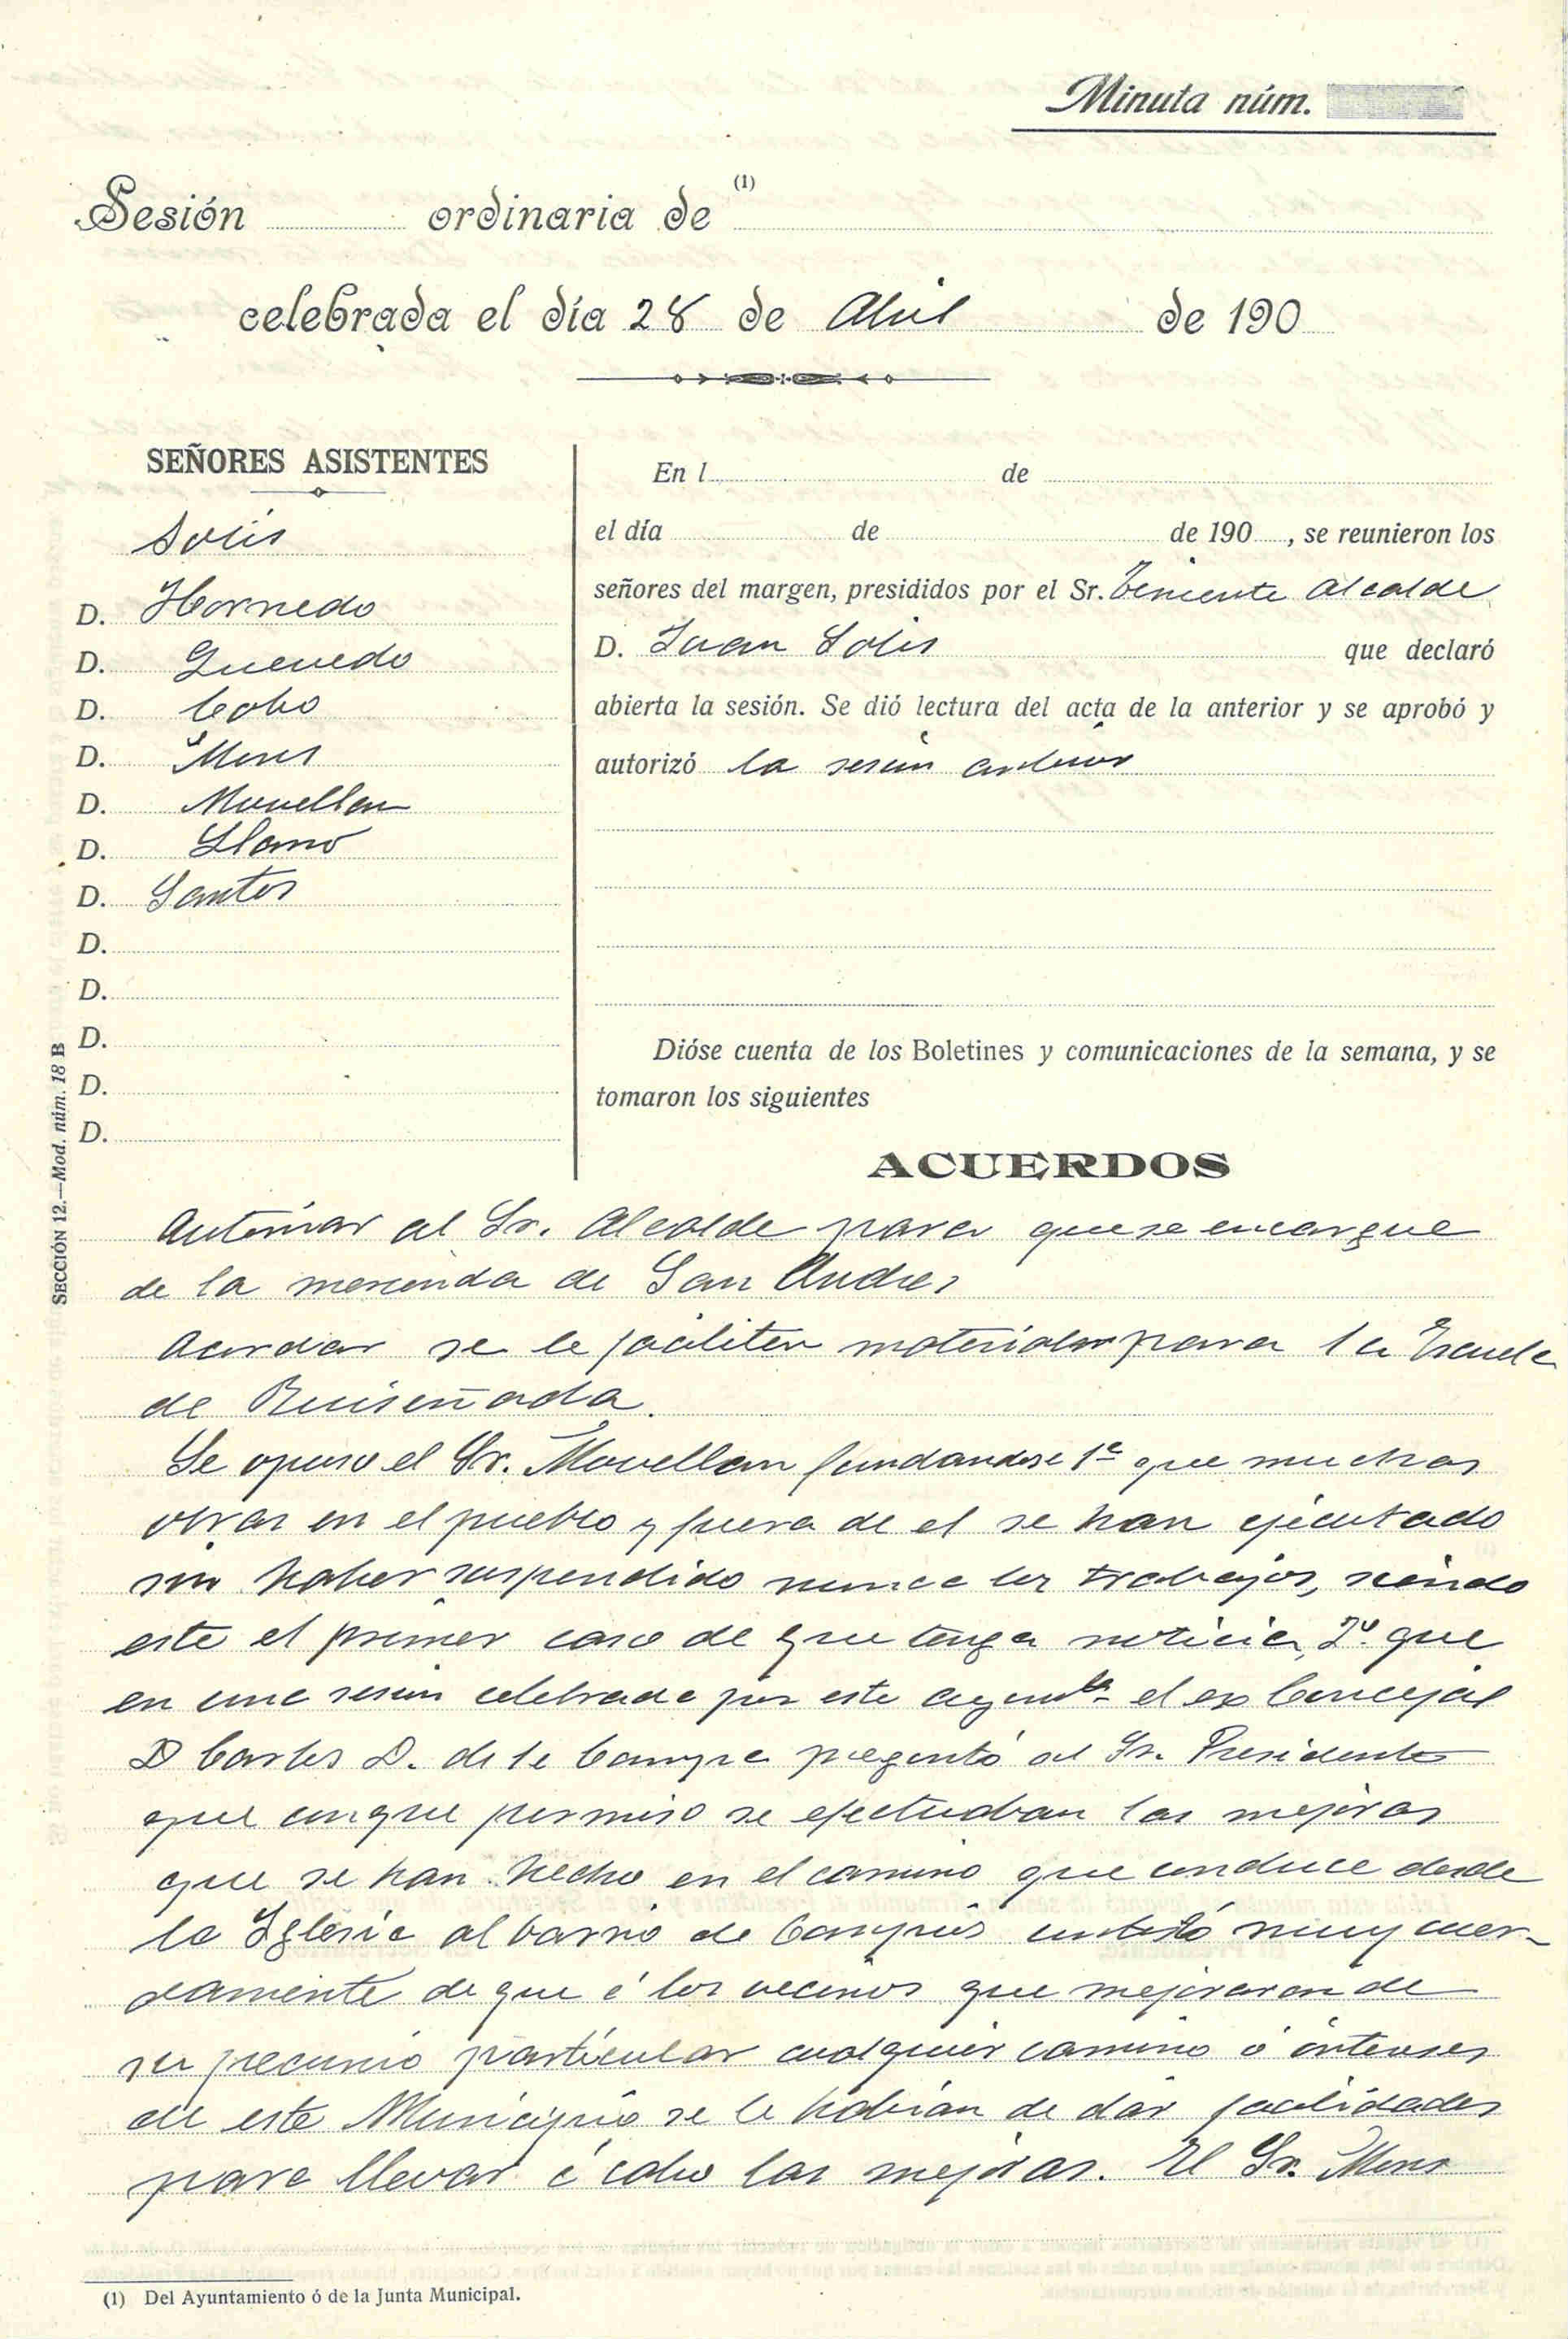 Minuta núm.
Sesión ordinaria de (1)
celebrada el día 28 de Abril de 190
SEÑORES ASISTENTES
Solis
D. Hornedo
D. Quevedo
D. Cobo
D. Mons
D. Movellan
D. Llano
D. Santos
D.
D.
D.
D.
D.
En l de
el día de de 190 , se reunieron los
señores del margen, presididos por el Sr. Teniente Alcalde
D. Juan Solis que declaró
abierta la sesión. Se dió lectura del acta de la anterior y se aprobó y
autorizó la sesion anterior
Dióse cuenta de los Boletines y comunicaciones de la semana, y se
tomaron los siguientes
ACUERDOS
Autorizar al Sr. Alcalde para que se encargue
de la merienda de San Andres
Acordar se le faciliten materiales para la Escuela
de Ruiseñada.
Se opuso el Sr. Movellan fundandose 1º que muchas
obras en el pueblo y fuera de el se han ejecutado
sin haber suspendido nunca los trabajos, siendo
este el primer caso de que tenga noticia, 2º. que
en una sesion celebrada por este ayunto el ex Concejal
D Carlos D. de la Campa pregontó al Sr. Presidente
que con que permiso se efectuaban las mejoras
que se han hecho en el camino que conduce desde
la Iglesia al barrio de Campíos contestó muy cuer-
damente de que á los vecinos que mejoraran de
su pecunio particular cualquier camino ó intereses
de este Municipio se le habian de dar facilidades
para llevar á cabo las mejoras. El Sr. Mons
SECCIÓN 12.—Mod. núm. 18 B
(1) Del Ayuntamiento ó de la Junta Municipal.